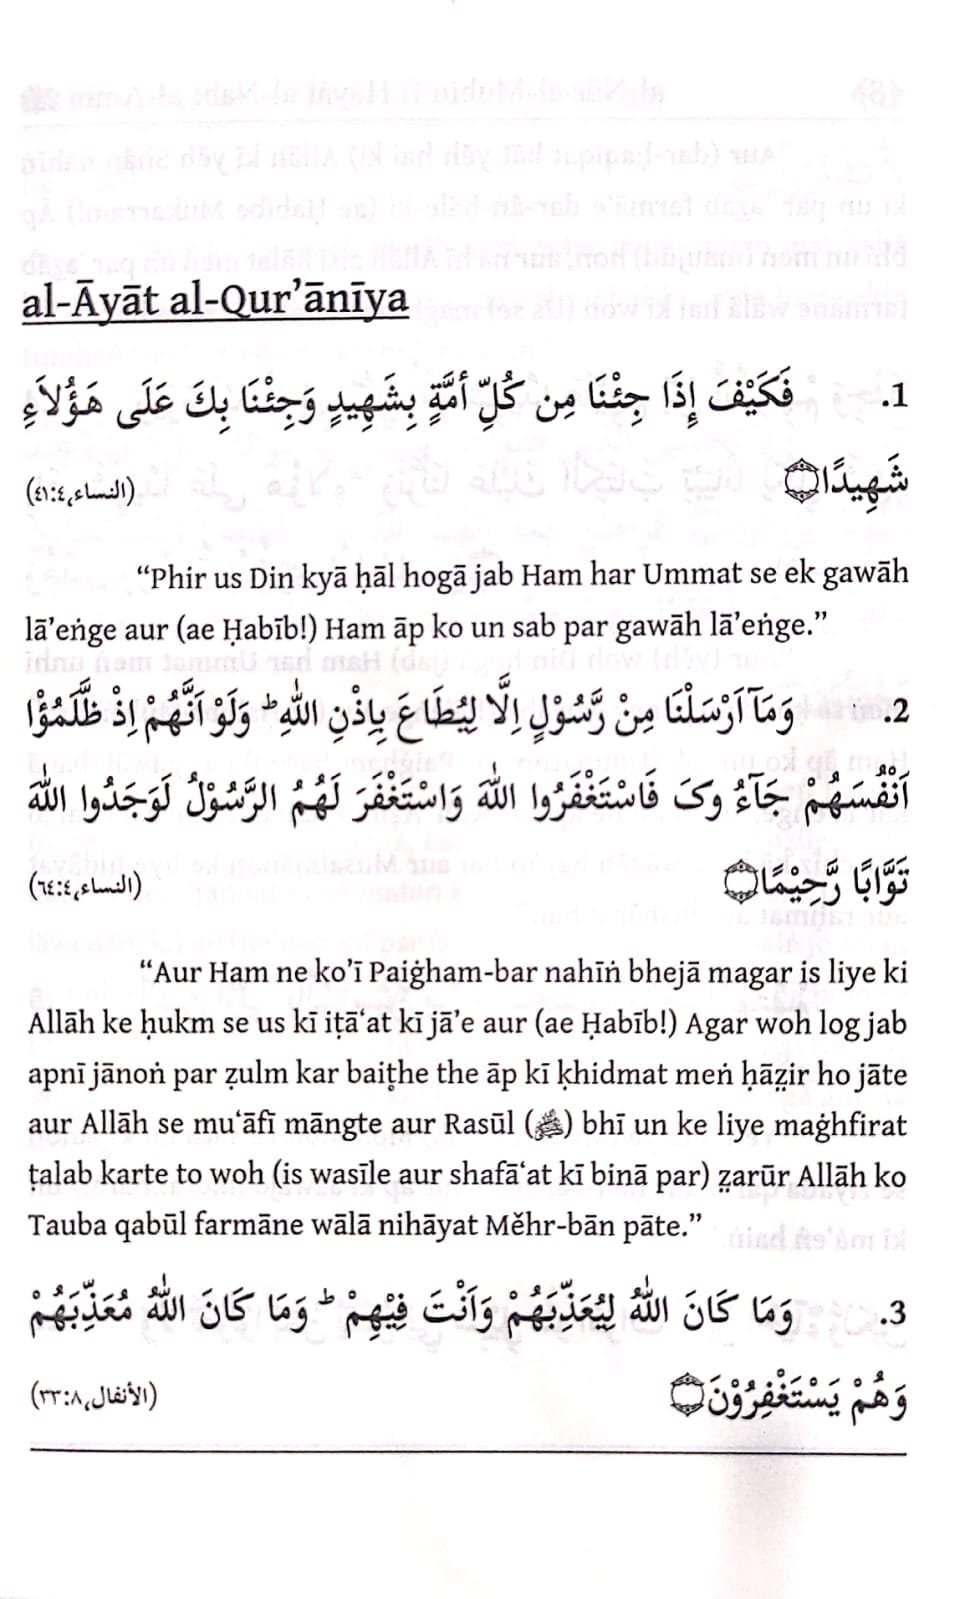 al-Āyāt al-Qur’ānīya
1. فَكَيْفَ إِذَا جِئْنَا مِن كُلِّ أُمَّةٍ بِشَهِيدٍ وَجِئْنَا بِكَ عَلَى هَؤُلَاءِ
شَهِيدًا۝ (النساء،٤١:٤)
“Phir us Din kyā ḥāl hogā jab Ham har Ummat se ek gawāh
lā’eṅge aur (ae Ḥabīb!) Ham āp ko un sab par gawāh lā’eṅge.”
2. وَمَآ اَرْسَلْنَا مِنْ رَّسُوْلٍ اِلَّا لِيُطَاعَ بِاِذْنِ اللهِ ؕ وَلَوْ اَنَّهُمْ اِذْ ظَّلَمُوْٓا
اَنْفُسَهُم جَآءُ وکَ فَاسْتَغْفَرُوا اللهَ وَاسْتَغْفَرَ لَهُمُ الرَّسُوْلُ لَوَجَدُوا اللهَ
تَوَّابًا رَّحِيْمًا۝ (النساء،٦٤:٤)
“Aur Ham ne ko’ī Paiġham-bar nahīṅ bhejā magar is liye ki
Allāh ke ḥukm se us kī iṭā‘at kī jā’e aur (ae Ḥabīb!) Agar woh log jab
apnī jānoṅ par ẓulm kar baiṭhe the āp kī ḳhidmat meṅ ḥāẓir ho jāte
aur Allāh se mu‘āfī māngte aur Rasūl (ﷺ) bhī un ke liye maġhfirat
ṭalab karte to woh (is wasīle aur shafā‘at kī binā par) ẓarūr Allāh ko
Tauba qabūl farmāne wālā nihāyat Měhr-bān pāte.”
3. وَمَا كَانَ اللهُ لِيُعَذِّبَهُمْ وَاَنْتَ فِيْهِمْ ؕ وَمَا كَانَ اللهُ مُعَذِّبَهُمْ
وَهُمْ يَسْتَغْفِرُوْنَ۝ (الأنفال،٣٣:٨)